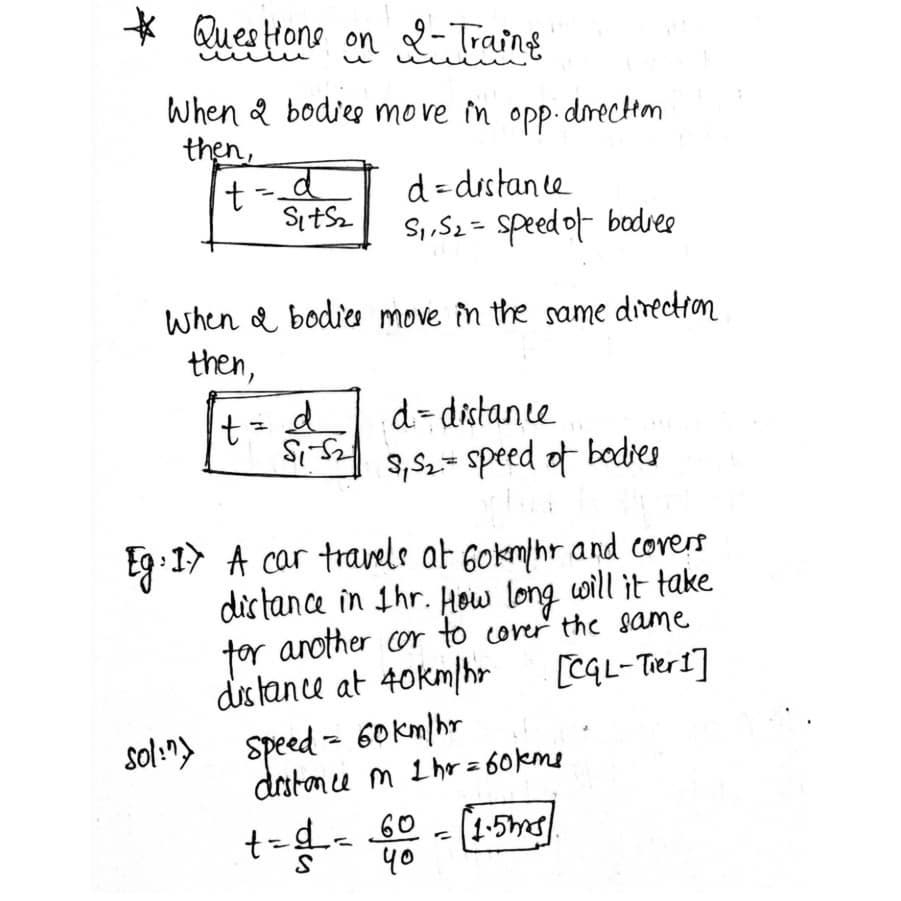 * Questions on 2-Trains
When 2 bodies move in opp. direction
then,
t = d/S₁+S₂ d = distance
S₁,S₂ = speed of bodies
When 2 bodies move in the same direction
then,
t = d/S₁-S₂ d = distance
S₁S₂ = speed of bodies
Eg:1> A car travels at 60km/hr and covers
distance in 1hr. How long will it take
for another car to cover the same
distance at 40km/hr [CGL-Tier1]
Sol:n> speed = 60km/hr
distance in 1hr = 60kms
t = d/s = 60/40 = 1.5hrs.